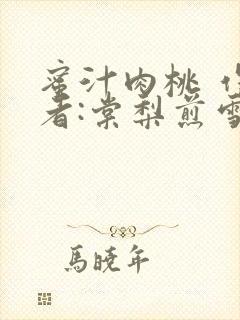 蜜汁肉桃 作
者:棠梨煎雪
馬曉年